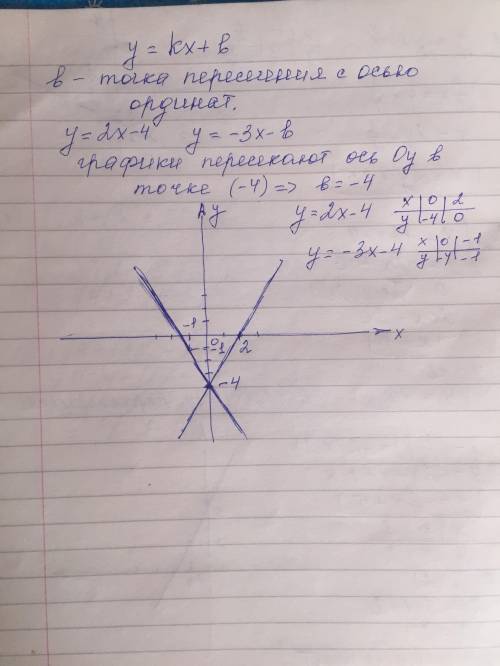 y = kx + b
b – точка пересечения с осью
ординат.
y = 2x – 4 y = –3x – b
графики пересекают ось Oy в
точке (–4) => b = –4
y = 2x – 4 x 0 2
y –4 0
y = –3x – 4 x 0 –1
y –4 –1
y
–1
0
–1
2
x
–4